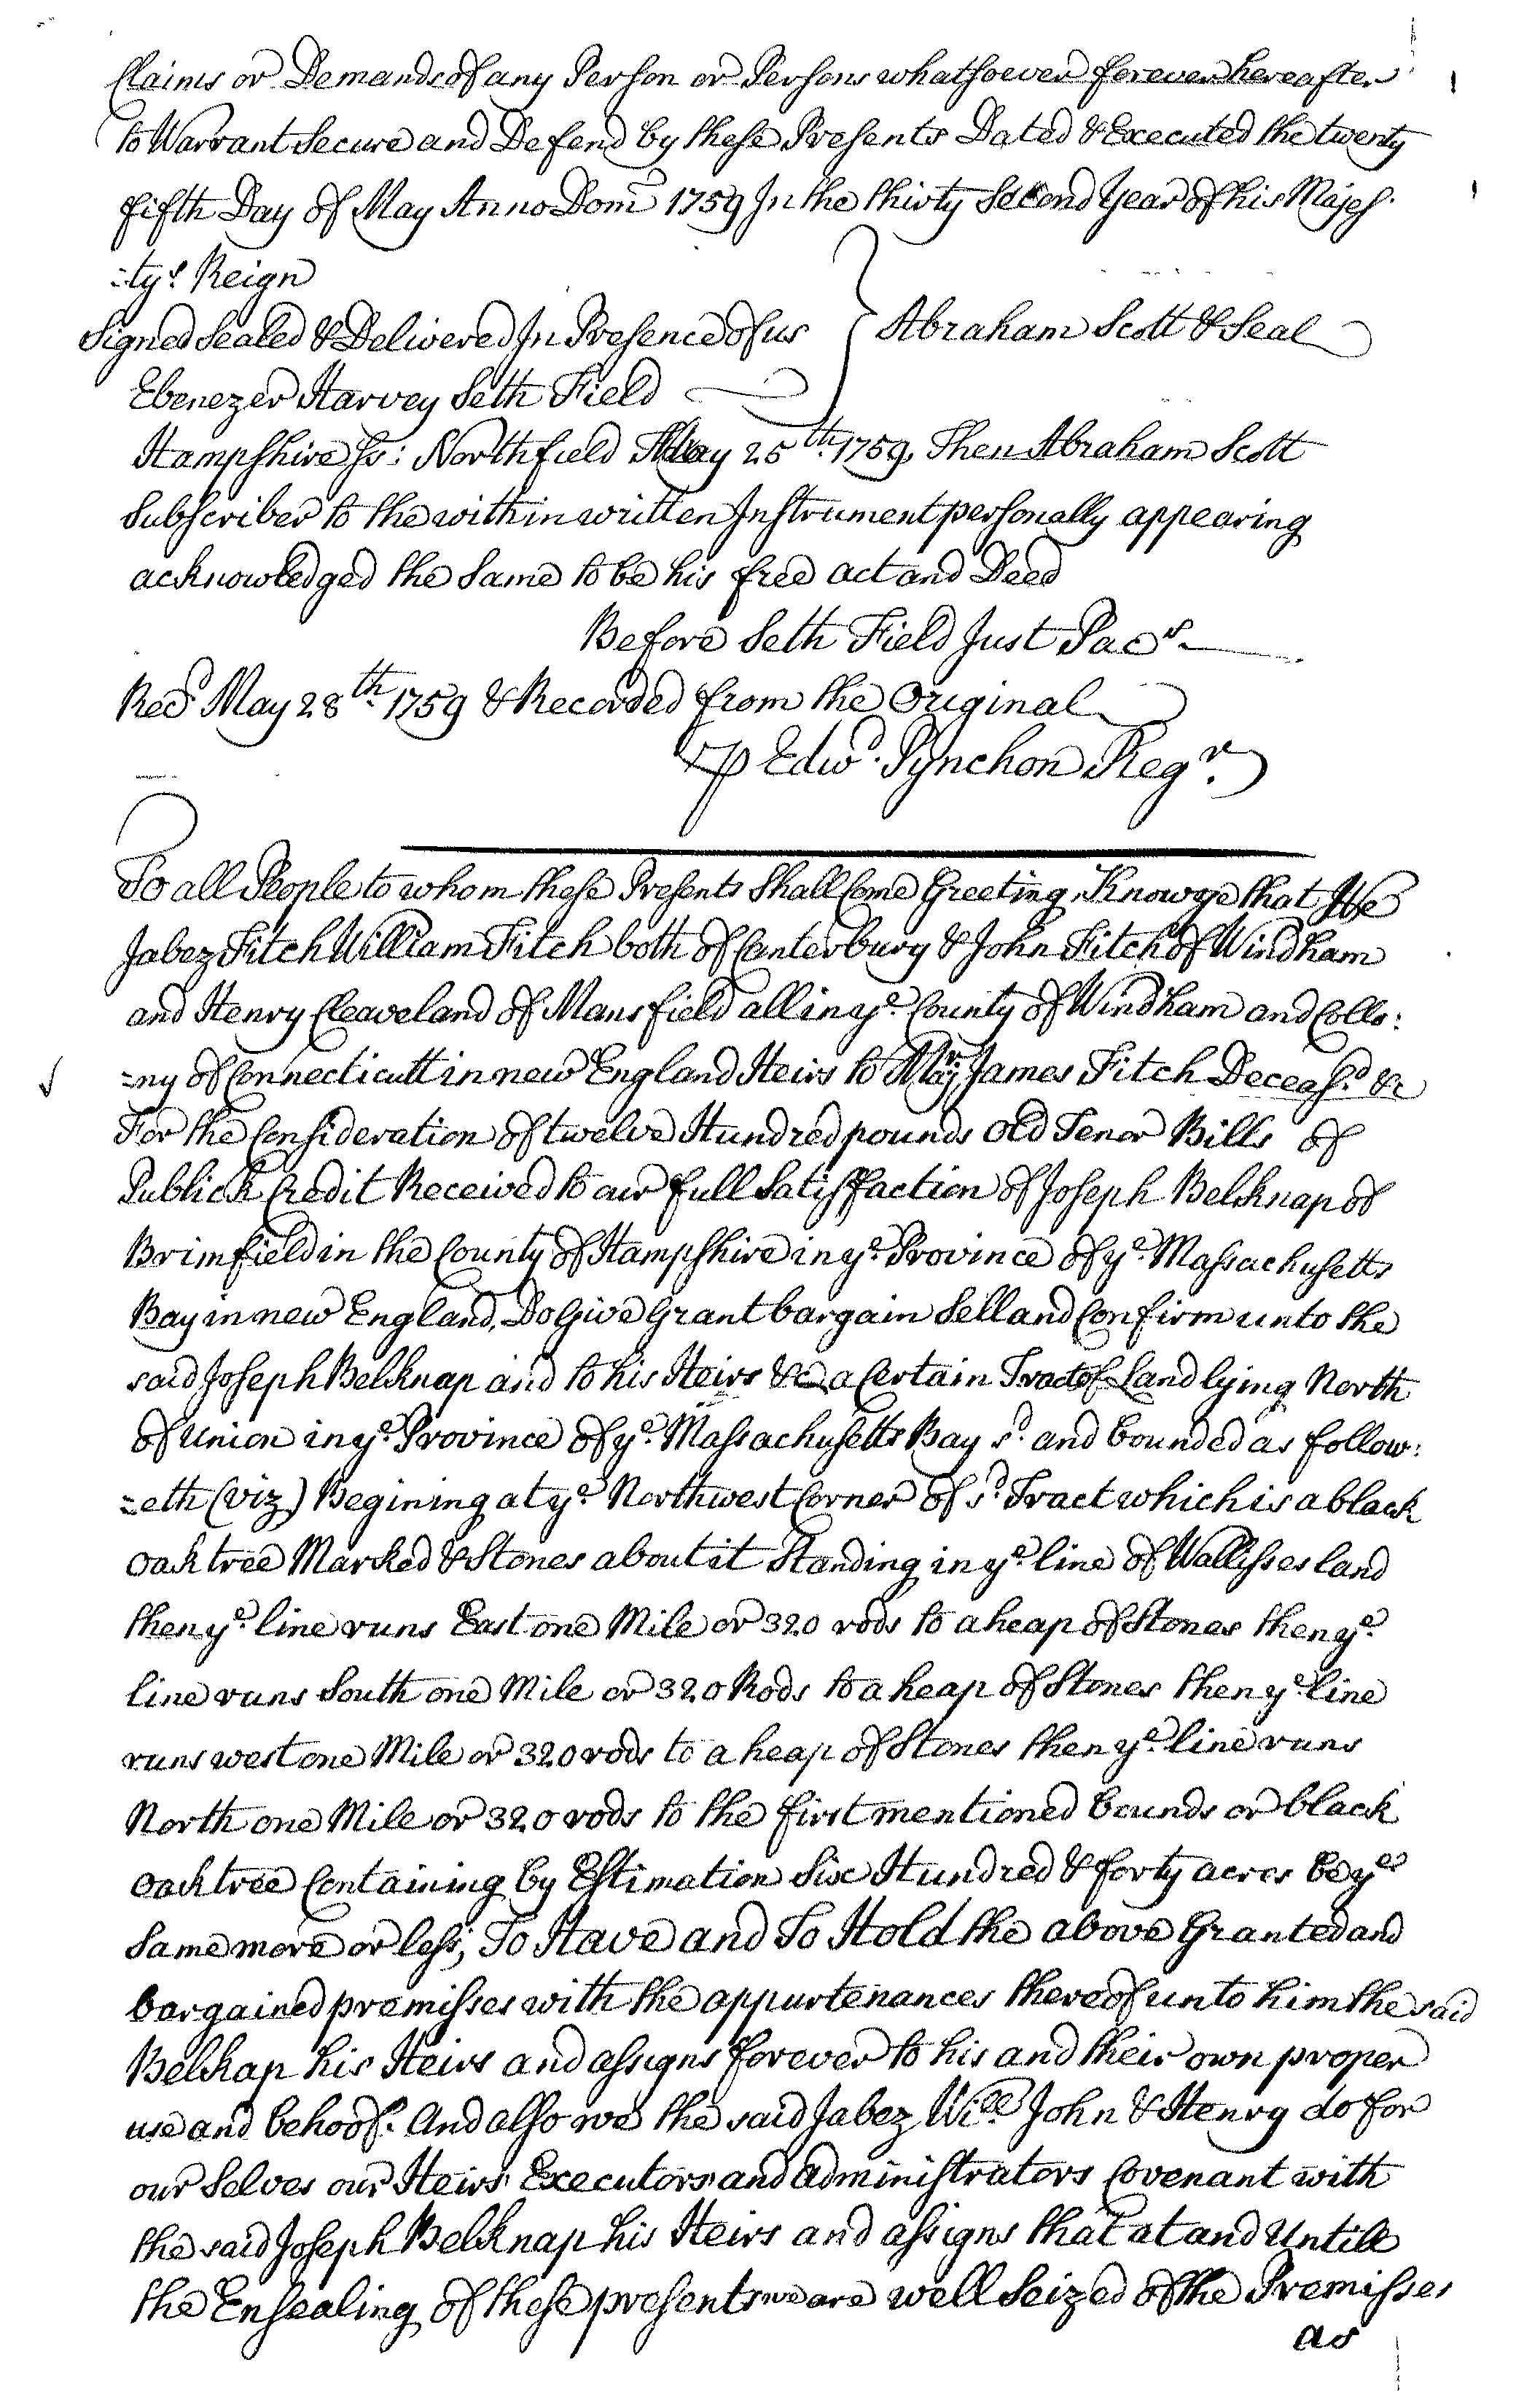 Claims or Demands of any Person or Persons whatsoever forever hereafter
to Warrant Secure and Defend by these Presents Dated & Executed the twenty
fifth Day of May Anno Dom 1759 In the thirty Second Year of his Majes-
-ty's Reign
Signed Sealed & Delivered In Presence of us } Abraham Scott & Seal
Ebenezer Harvey Seth Field
Hampshire Ss: Northfield May 25th 1759, Then Abraham Scott
Subscriber to the within written Instrument personally appearing
acknowledged the Same to be his free act and Deed
Before Seth Field Just Pacs
Recd May 28th 1759 & Recorded from the Original
⅌ Edwd. Pynchon Regr.
To all People to whom these Presents Shall Come Greeting, Know ye that We
Jabez Fitch William Fitch both of Canterbury & John Fitch of Windham
and Henry Cleaveland of Mansfield all in ye County of Windham and Collo:
-ny of Connecticutt in new England Heirs to Majr James Fitch Deceasd &c
For the Consideration of twelve Hundred pounds Old Tenor Bills of
Publick Credit Received to our full Satisffaction of Joseph Belknap of
Brimfield in the County of Hampshire in ye Province of ye Massachusetts
Bay in new England, Do Give Grant bargain Sell and Confirm unto the
said Joseph Belknap and to his Heirs &c a Certain Tract of Land lying North
of Union in ye Province of ye Massachusetts Bay sd and bounded as follow:
-eth (viz) Begining at ye Northwest Corner of sd Tract which is a black
oak tree Marked & Stones about it Standing in ye line of Wallisses land
then ye line runs East one Mile or 320 rods to a heap of Stones then ye
line runs South one Mile or 320 Rods to a heap of Stones then ye line
runs west one Mile or 320 rods to a heap of Stones then ye line runs
North one Mile or 320 rods to the first mentioned bounds or black
oak tree Containing by Estimation Six Hundred & forty acres be ye
Same more or less; To Have and To Hold the above Granted and
bargained premisses with the appurtenances thereof unto him the said
Belkap his Heirs and assigns forever to his and their own proper
use and behoof. And also we the said Jabez Will John & Henry do for
our Selves our Heirs Executors and Administrators Covenant with
the said Joseph Belknap his Heirs and assigns that at and Untill
the Ensealing of these presents we are well Seized of the Premisses
as